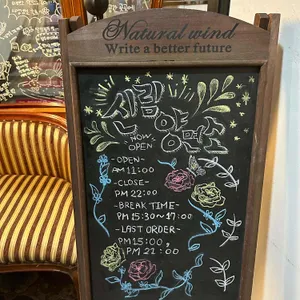 Natural wind
Write a better future
사랑
NOW
OPEN
-OPEN-
AM 11:00
-CLOSE-
PM 22:00
-BREAK TIME-
PM 15:30~17:00
-LAST ORDER-
PM 15:00,
PM 21:00